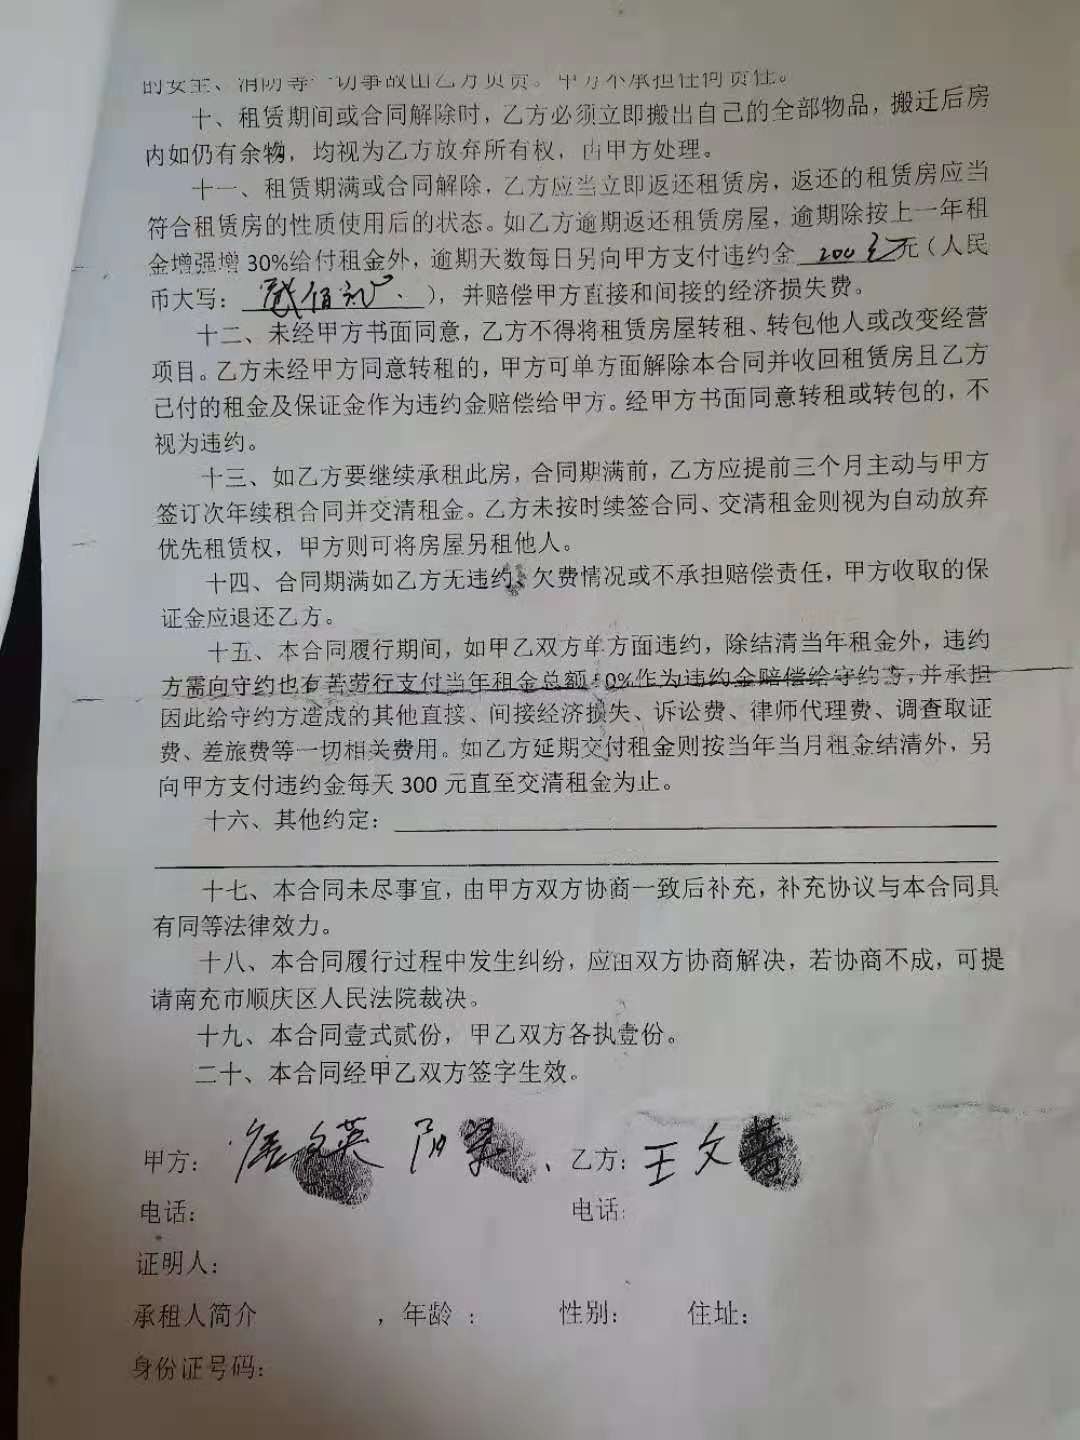 的安全、消防等一切事故由乙方负责。甲方不承担任何责任。
十、租赁期间或合同解除时，乙方必须立即搬出自己的全部物品，搬迁后房
内如仍有余物，均视为乙方放弃所有权，由甲方处理。
十一、租赁期满或合同解除，乙方应当立即返还租赁房，返还的租赁房应当
符合租赁房的性质使用后的状态。如乙方逾期返还租赁房屋，逾期除按上一年租
金增强增 30%给付租金外，逾期天数每日另向甲方支付违约金 200元 元（人民
币大写：贰佰元），并赔偿甲方直接和间接的经济损失费。
十二、未经甲方书面同意，乙方不得将租赁房屋转租、转包他人或改变经营
项目。乙方未经甲方同意转租的，甲方可单方面解除本合同并收回租赁房且乙方
已付的租金及保证金作为违约金赔偿给甲方。经甲方书面同意转租或转包的，不
视为违约。
十三、如乙方要继续承租此房，合同期满前，乙方应提前三个月主动与甲方
签订次年续租合同并交清租金。乙方未按时续签合同、交清租金则视为自动放弃
优先租赁权，甲方则可将房屋另租他人。
十四、合同期满如乙方无违约、欠费情况或不承担赔偿责任，甲方收取的保
证金应退还乙方。
十五、本合同履行期间，如甲乙双方单方面违约，除结清当年租金外，违约
方需向守约也有苦劳行支付当年租金总额50%作为违约金赔偿给守约方，并承担
因此给守约方造成的其他直接、间接经济损失、诉讼费、律师代理费、调查取证
费、差旅费等一切相关费用。如乙方延期交付租金则按当年当月租金结清外，另
向甲方支付违约金每天 300 元直至交清租金为止。
十六、其他约定：
十七、本合同未尽事宜，由甲方双方协商一致后补充，补充协议与本合同具
有同等法律效力。
十八、本合同履行过程中发生纠纷，应由双方协商解决，若协商不成，可提
请南充市顺庆区人民法院裁决。
十九、本合同壹式贰份，甲乙双方各执壹份。
二十、本合同经甲乙双方签字生效。
甲方： 英 阳 、乙方：王文
电话： 电话：
证明人：
承租人简介 ，年龄 ： 性别： 住址：
身份证号码：